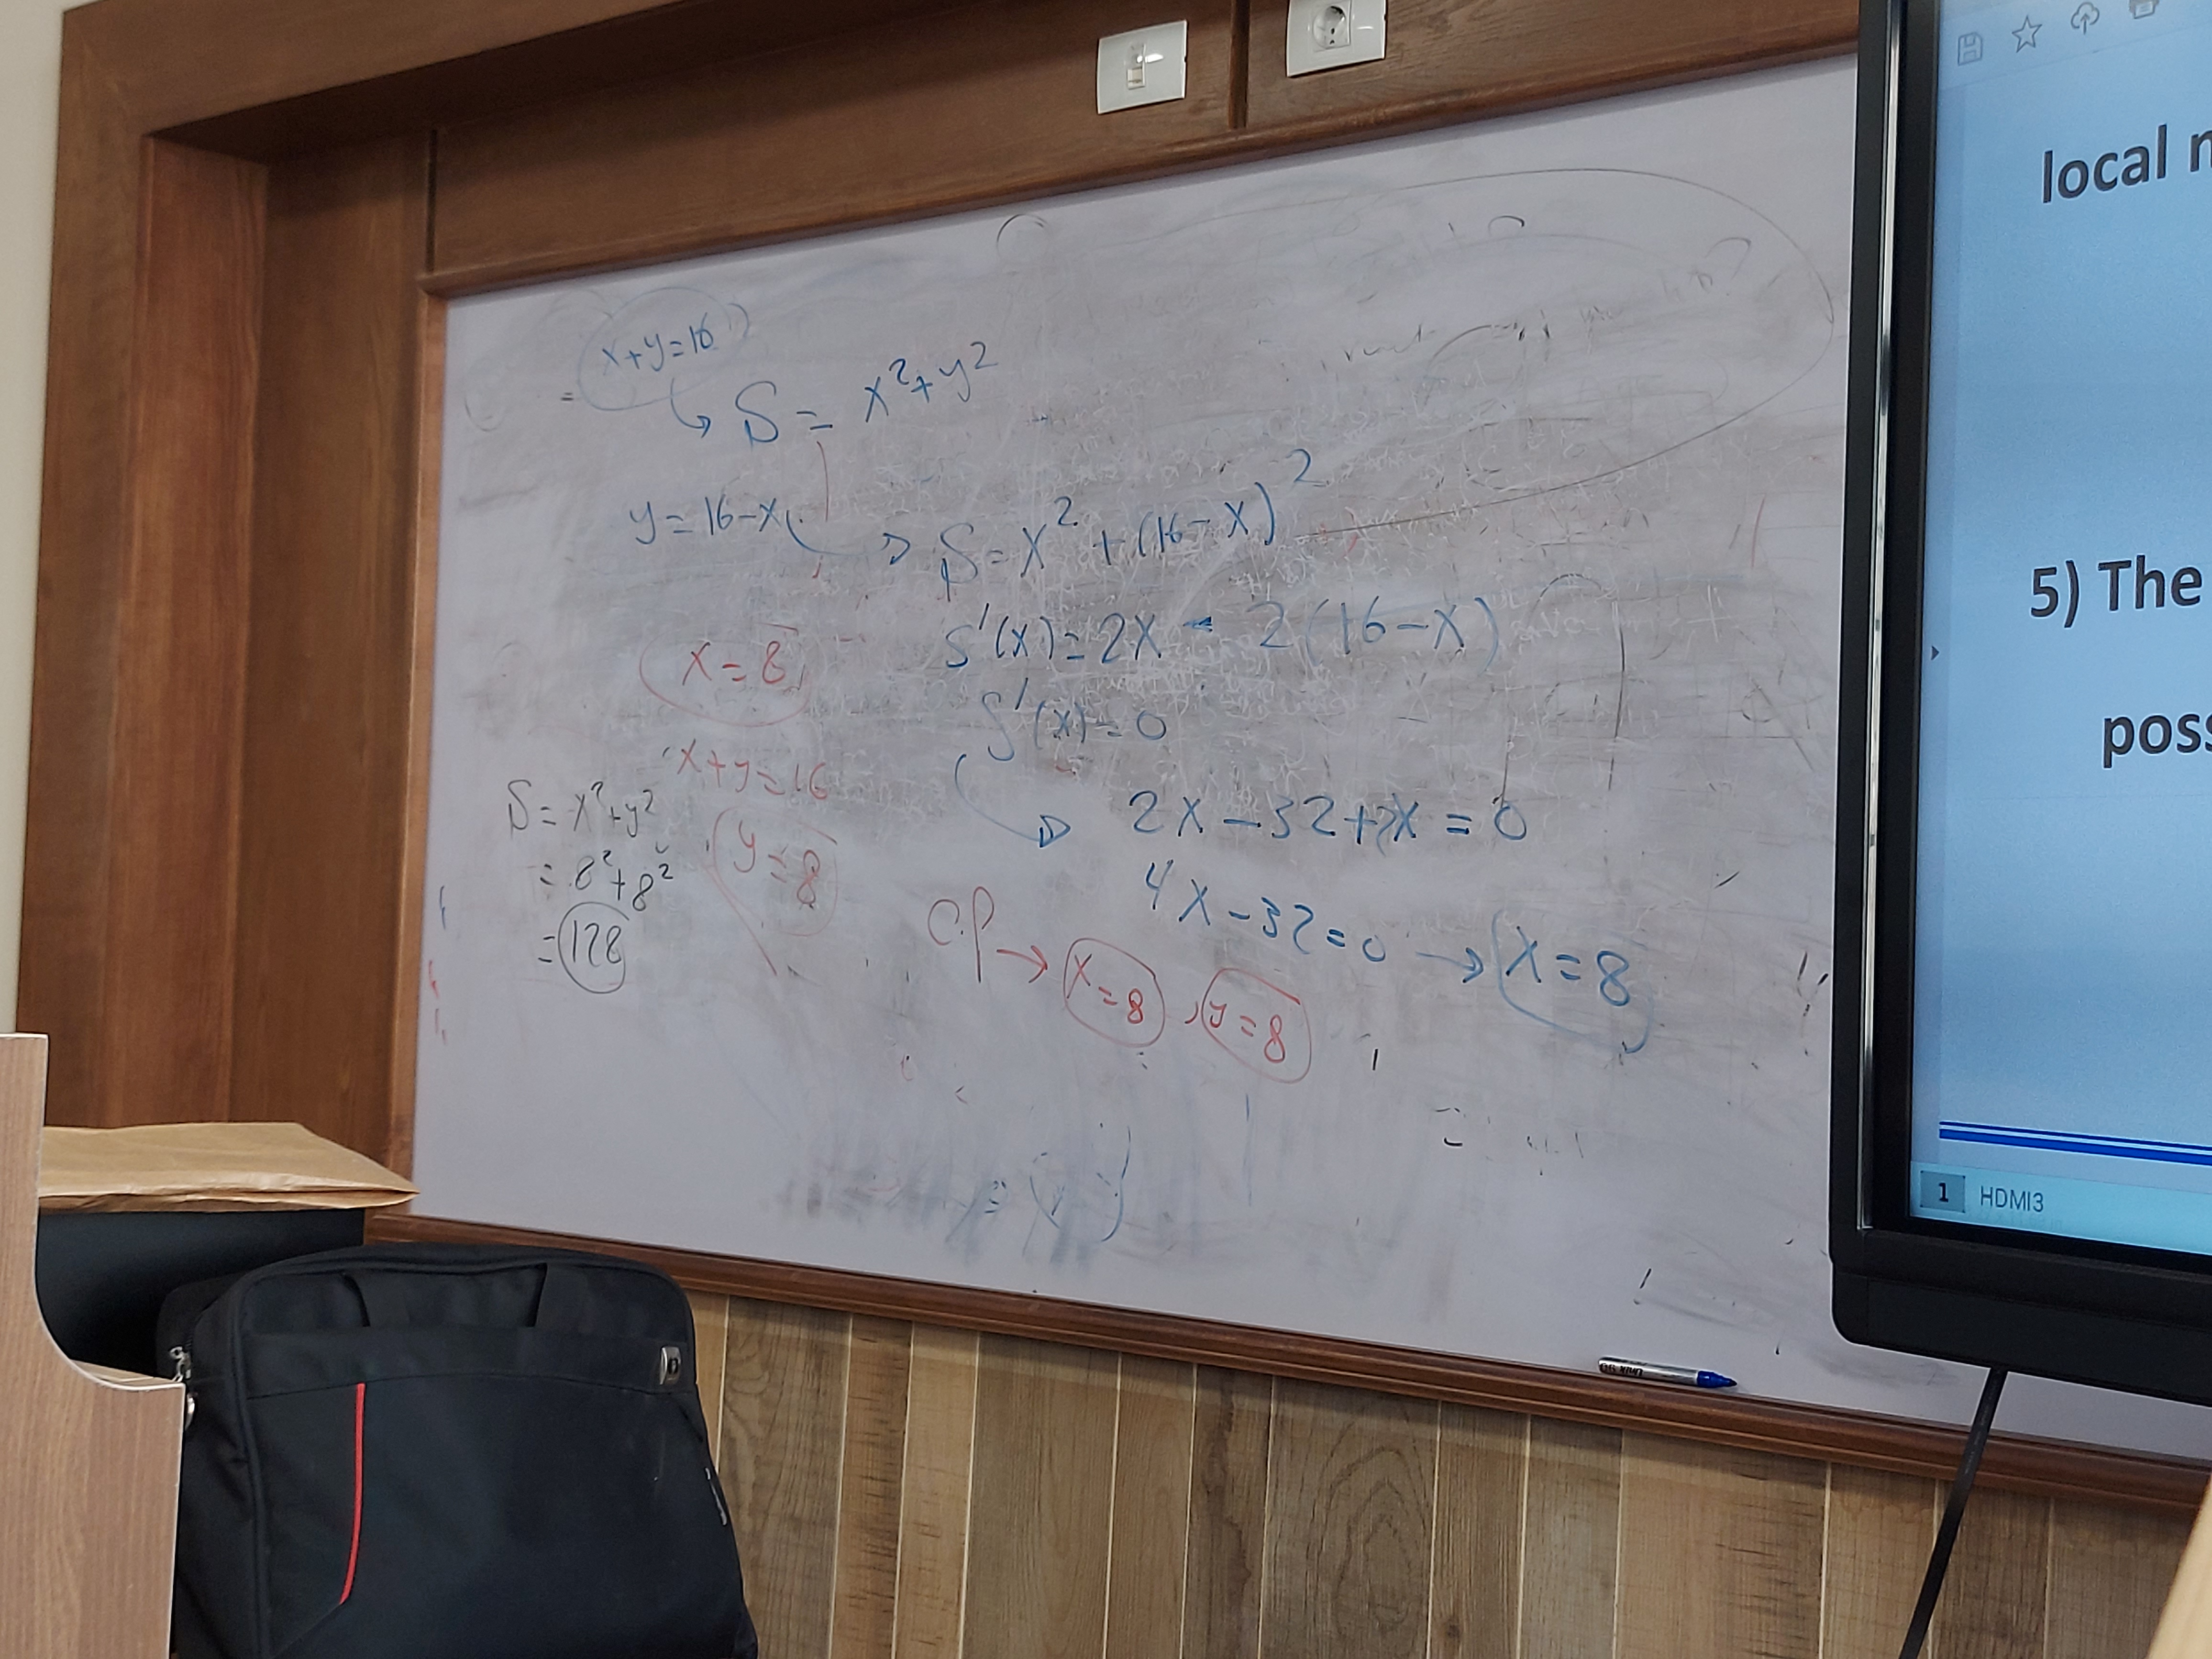 x+y=16
S = x²+y²
y=16-x
S=x²+(16-x)²
S'(x)=2x - 2(16-x)
S'(x)=0
2x-32+2x=0
4x-32=0 → x=8
C.P → x=8, y=8
x=8
x+y=16
y=8
S=x²+y²
=8²+8²
=128
local
5) The
1 HDMI3